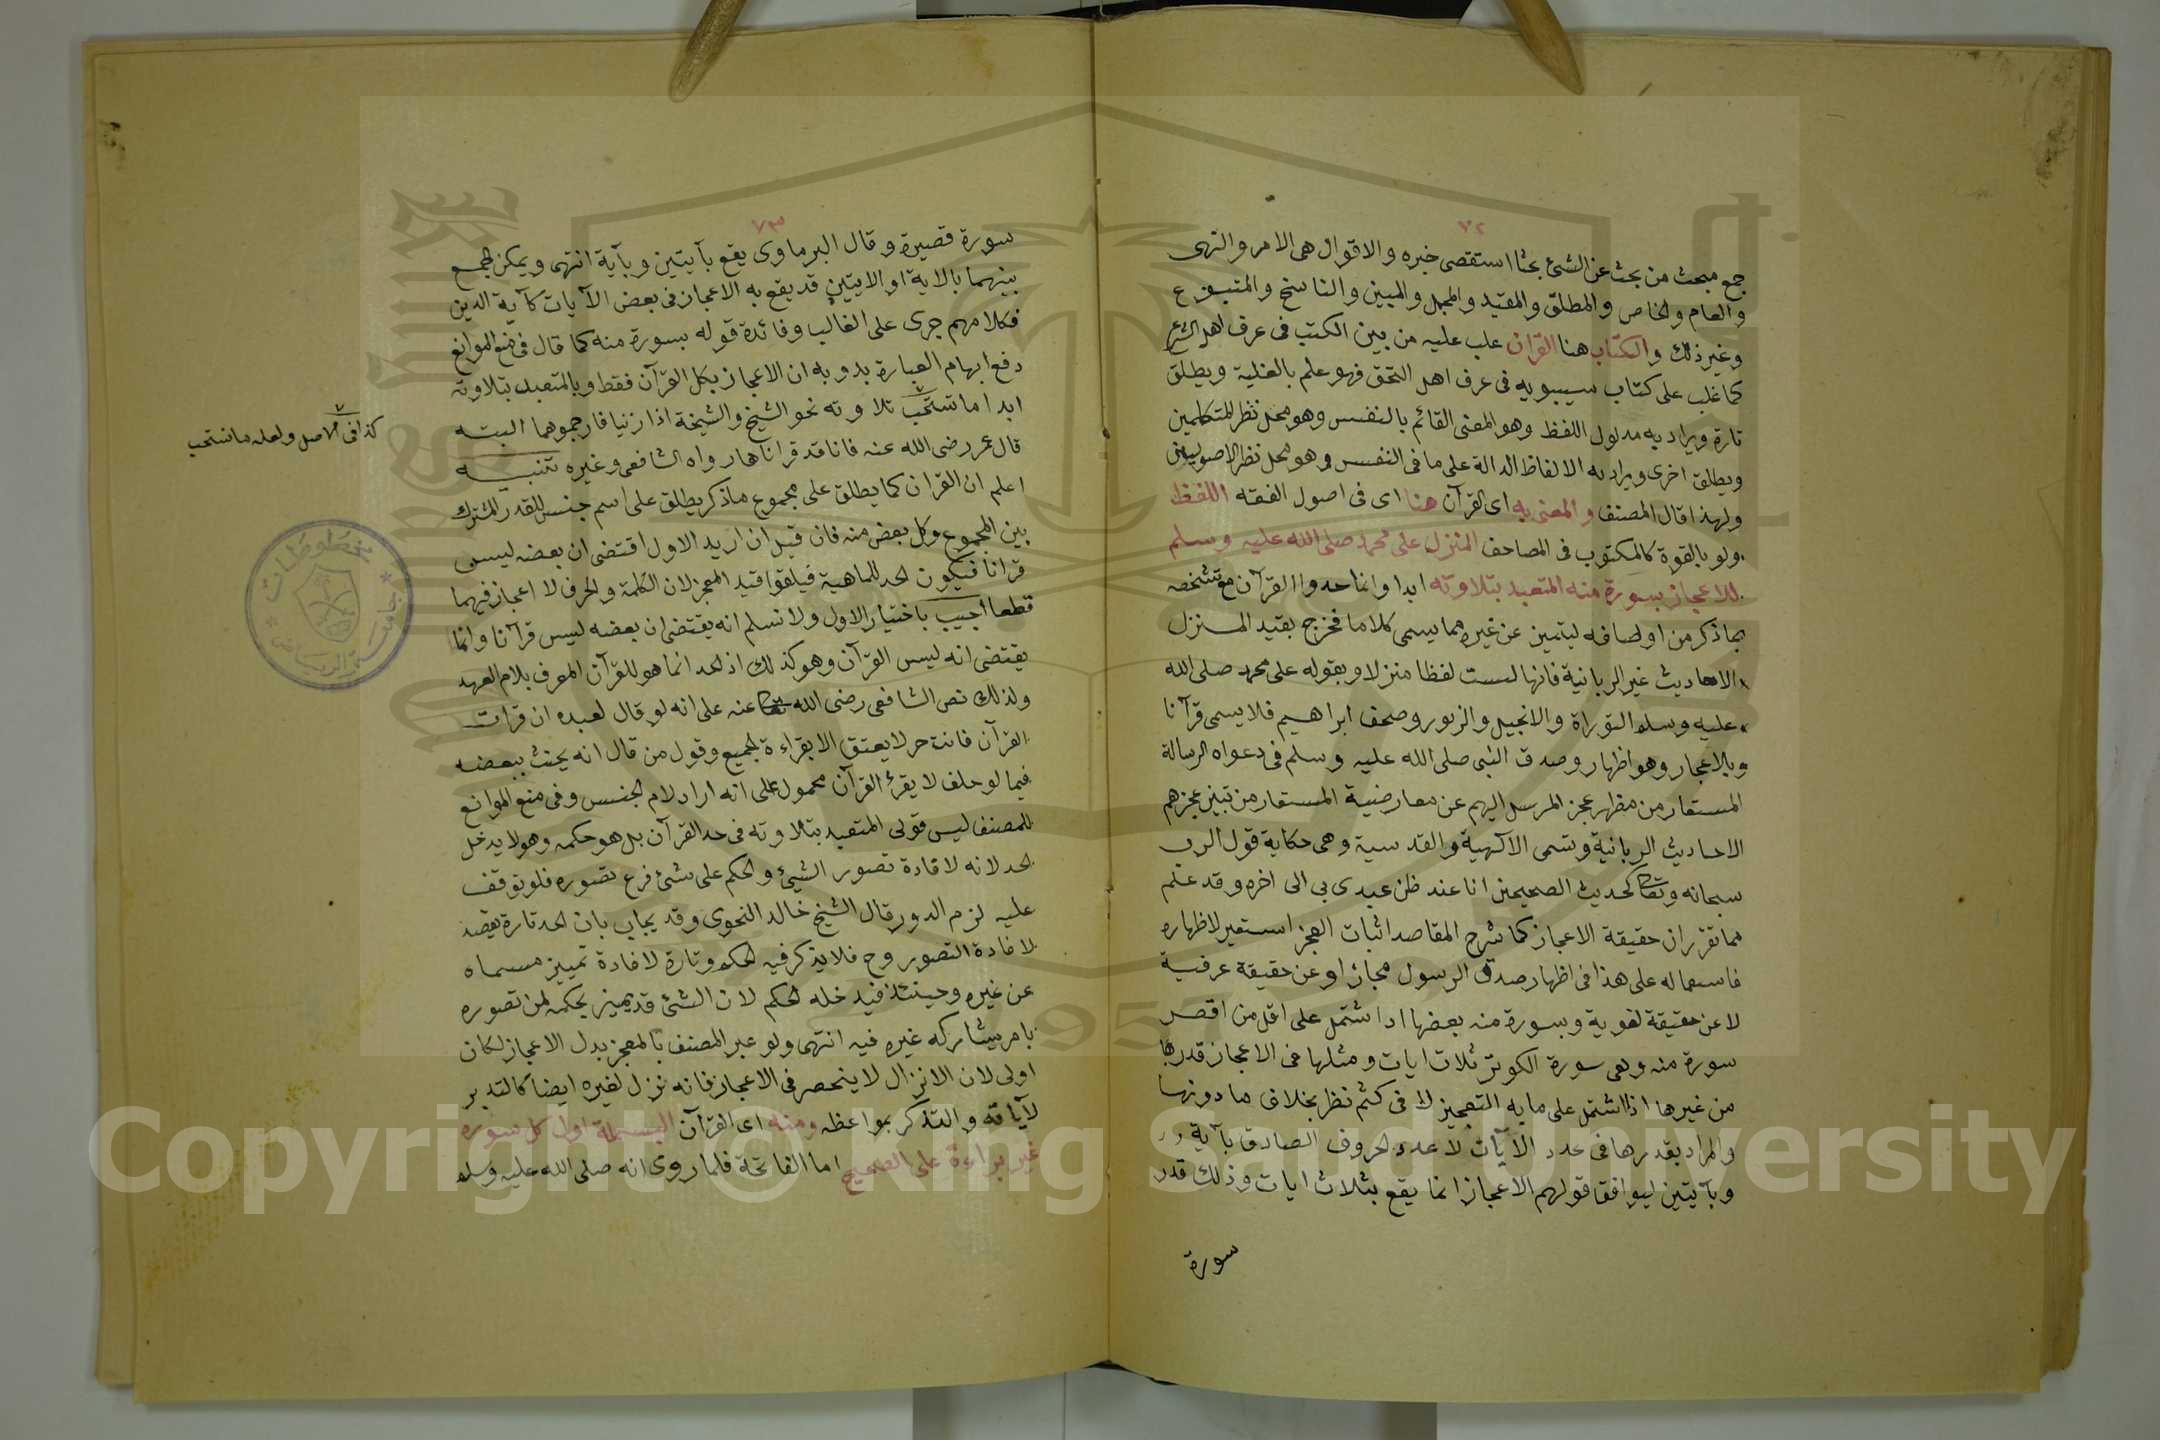 ٧٢
جمع مبحث من بحث عن الشئ بحثا استقصى خبره والاقوال هى الامر والنهى
والعام والخاص والمطلق والمقيد والمجمل والمبين والناسخ والمنسوخ
وغير ذلك والكتاب هنا القران غلب عليه من بين الكتب فى عرف اهل الشرع
كما غلب على كتاب سيبويه فى عرف اهل النحو فهو علم بالغلبة ويطلق
تارة ويراد به مدلول اللفظ وهو المعنى القائم بالنفس وهو محل نظر المتكلمين
ويطلق اخرى ويراد به الالفاظ الدالة على ما فى النفس وهو محل نظر الاصوليين
ولهذا قال المصنف والمعنى به اى القرآن هنا اى فى اصول الفقه اللفظ
ولو بالقوة كالمكتوب فى المصاحف المنزل على محمد صلى الله عليه وسلم
للاعجاز بسورة منه المتعبد بتلاوته ابدا وانما حدوا القرآن مع تشخصه
بما ذكر من اوصافه ليتميز عن غيره مما يسمى كلاما فخرج بقيد المنزل
الاحاديث غير الربانية فانها ليست لفظا منزلا وبقوله على محمد صلى الله
عليه وسلم التوراة والانجيل والزبور وصحف ابراهيم فلا يسمى قرآنا
وبلاعجاز وهو اظهار وصدق النبى صلى الله عليه وسلم فى دعواه الرسالة
المستعار من مظهر عجز المرسل اليهم عن معارضية المستعار من تبين عجزهم
الاحاديث الربانية وتسمى الآلهية والقدسية وهى حكاية قول الرب
سبحانه وتعا كحديث الصحيحين انا عند ظن عبدى بى الى اخره وقد علم
مما تقرر ان حقيقة الاعجاز كما شرح المقاصد اثبات العجز استعير لاظهاره
فاسعماله على هذا فى اظهار صدق الرسول مجاز او عن حقيقة عرفية
لا عن حقيقة لغوية وبسورة منه بعضها اذا اشتمل على اقل من اقصر
سورة منه وهى سورة الكوثر ثلاث ايات ومثلها فى الاعجاز قدرها
من غيرها اذا اشتمل على ما به التعجيز لا فى كثم نظر بخلاف ما دونها
والمراد بقدرها فى عدد الآيات لا عدد الحروف الصادق بآية
وبآيتين ليوافق قولهم الاعجاز انما يقع بثلاث ايات وذلك قدر
سورة
٧٣
سورة قصيرة وقال البرماوى يقع بآيتين وبآية انتهى ويمكن الجمع
بينهما بالاية او الايتين قد يقع به الاعجاز فى بعض الآيات كآية الدين
فكلامهم جرى على الغالب وفائدة قوله بسورة منه كما قال فى منع الموانع
دفع ايهام العبارة بدونه ان الاعجاز بكل القرآن فقط وبالمتعبد بتلاوته
ابدا ما تستحب تلاوته نحو الشيخ والشيخة اذا زنيا فارجموهما البته
قال عمر رضى الله عنه فانا قد قراناها رواه الشافعى وغيره تنبيه
اعلم ان القرآن كما يطلق على مجموع ما ذكر يطلق على اسم جنس للقدر المشترك
بين المجموع وكل بعض منه فان قيل ان اريد الاول اقتضى ان بعضه ليس
قرانا فيكون الحد للماهية فيلغوا قيد المعجز لان الكلمة والحرف لا اعجاز فيهما
قطعا اجيب باختيار الاول ولا نسلم انه يقتضى ان بعضه ليس قرآنا وانما
يقتضى انه ليس القرآن وهو كذلك اذ الحد انما هو للقرآن المعرف بلام العهد
ولذلك نص الشافعى رضى الله تعا عنه على انه لو قال لعبده ان قرات
القرآن فانت حر لا يعتق الا بقراءة الجميع وقول من قال انه يحنث ببعضه
فيما لو حلف لا يقرئ القرآن محمول على انه اراد لام الجنس وفى منع الموانع
للمصنف ليس قولى المتعبد بتلاوته فى حد القرآن بل هو حكمه وهو لا يدخل
الحد لانه لافادة تصور الشيئ والحكم على شئ فرع تصوره فلو توقف
عليه لزم الدور قال الشيخ خالد النحوى وقد يجاب بان الحد تارة يقصد
لافادة التصور وح فلا يذكر فيه الحكم وتارة لافادة تمييز مسماه
عن غيره وحينئذ فيدخله الحكم لان الشئ قد يميز بحكمه لمن تصوره
بامر يشاركه غيره فيه انتهى ولو عبر المصنف بالمعجز بدل الاعجاز لكان
اولى لان الانزال لا ينحصر فى الاعجاز فانه نزل لغيره ايضا كالتدبر
لآياته والتذكر بمواعظه ومنه اى القرآن البسملة اول كل سورة
غير براءة على الصحيح اما الفاتحة فلما روى انه صلى الله عليه وسلم
كذا فى الاصل ولعله ما نستحب
مخطوطات
جامعة الرياض
1957
Copyright © King Saud University